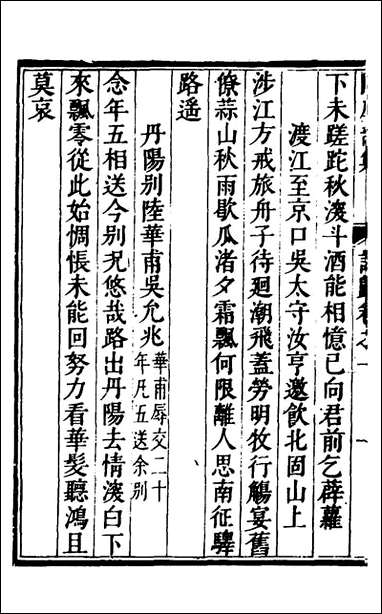 下未蹉跎秋深斗酒能相憶已向君前乞薜蘿
渡江至京口吳太守汝亨邀飲北固山上
涉江方戒旅舟子待廻潮飛蓋勞明牧行觴宴舊
僚蒜山秋雨歇瓜渚夕霜飄何限離人思南征驛
路遥
丹陽别陸華甫吳允兆華甫辱交二十
年凡五送余别
念年五相送今别況悠哉路出丹陽去情深白下
來飄零從此始惆悵未能回努力看華髮聽鴻且
莫哀